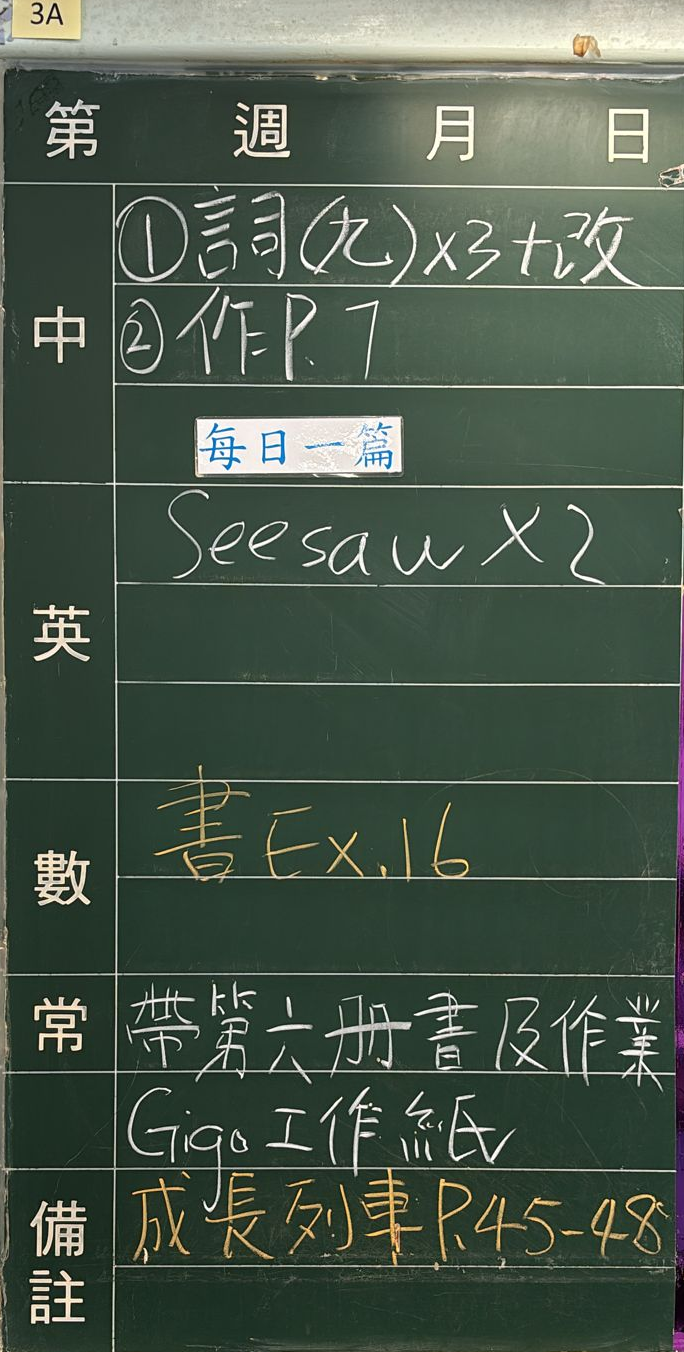 3A
第 週 月 日
中
①詞(九)x3+改
②作P.7
每日一篇
英
Seesaw X2
數
書Ex.16
常
帶第六册書及作業
Gigo工作紙
備註
成長列車P.45-48